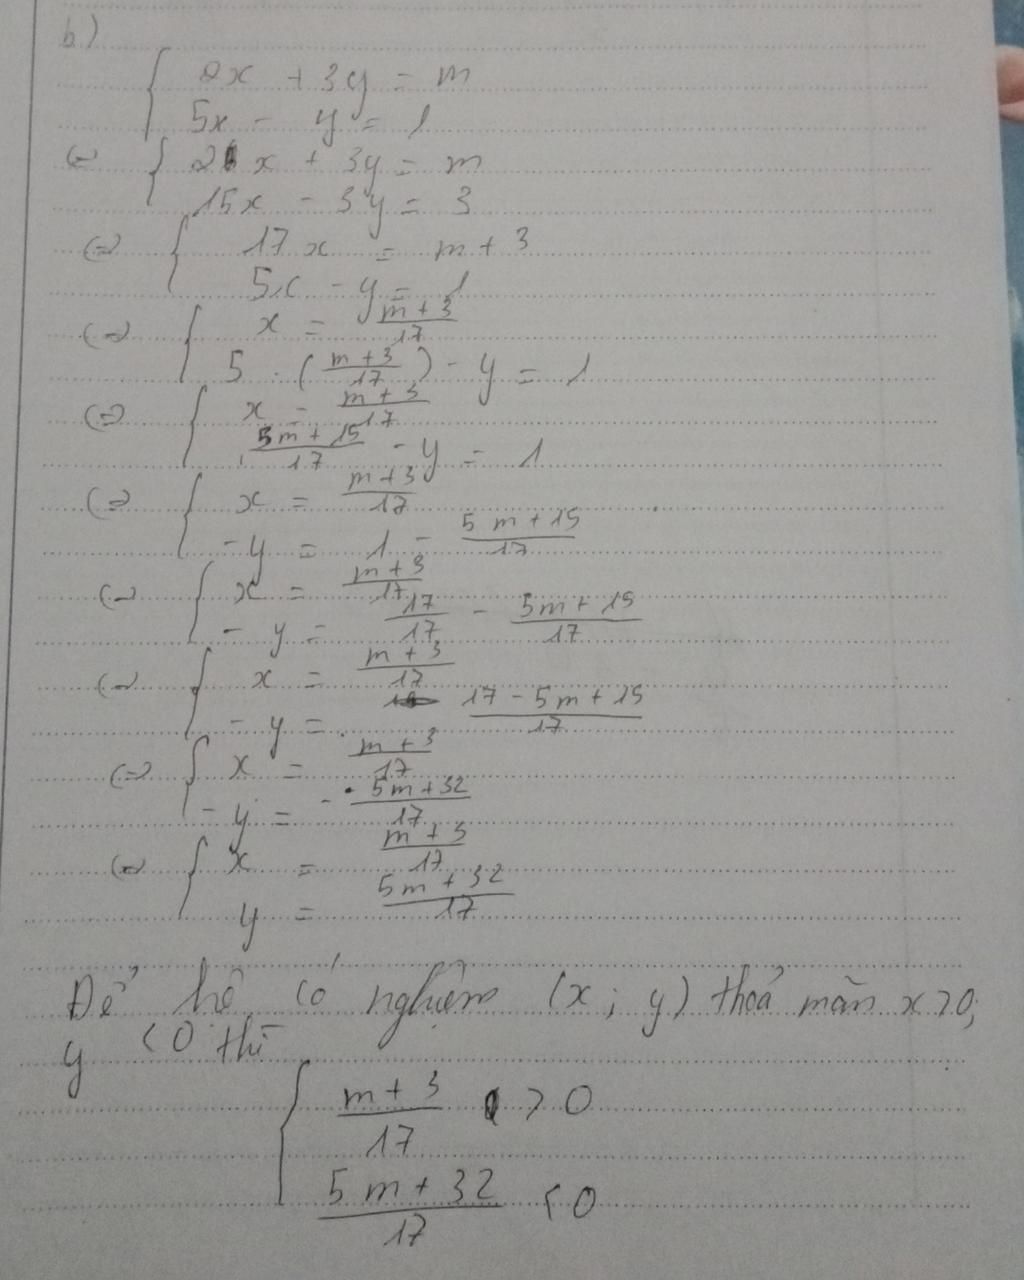 b)
{ 2x + 3y = m
5x - y = 1
(=) { 2x + 3y = m
15x - 3y = 3
(=) { 17x = m + 3
5x - y = 1
(=) { x = \frac{m+3}{17}
5 . (\frac{m+3}{17}) - y = 1
(=) { x = \frac{m+3}{17}
\frac{5m+15}{17} - y = 1
(=) { x = \frac{m+3}{17}
-y = 1 - \frac{5m+15}{17}
(=) { x = \frac{m+3}{17}
-y = \frac{17}{17} - \frac{5m+15}{17}
(=) { x = \frac{m+3}{17}
-y = \frac{17-5m+15}{17}
(=) { x = \frac{m+3}{17}
-y = -\frac{5m+32}{17}
(=) { x = \frac{m+3}{17}
y = \frac{5m+32}{17}
Để hệ có nghiệm (x; y) thoả mãn x>0;
y <0 thì
{ \frac{m+3}{17} > 0
\frac{5m+32}{17} < 0